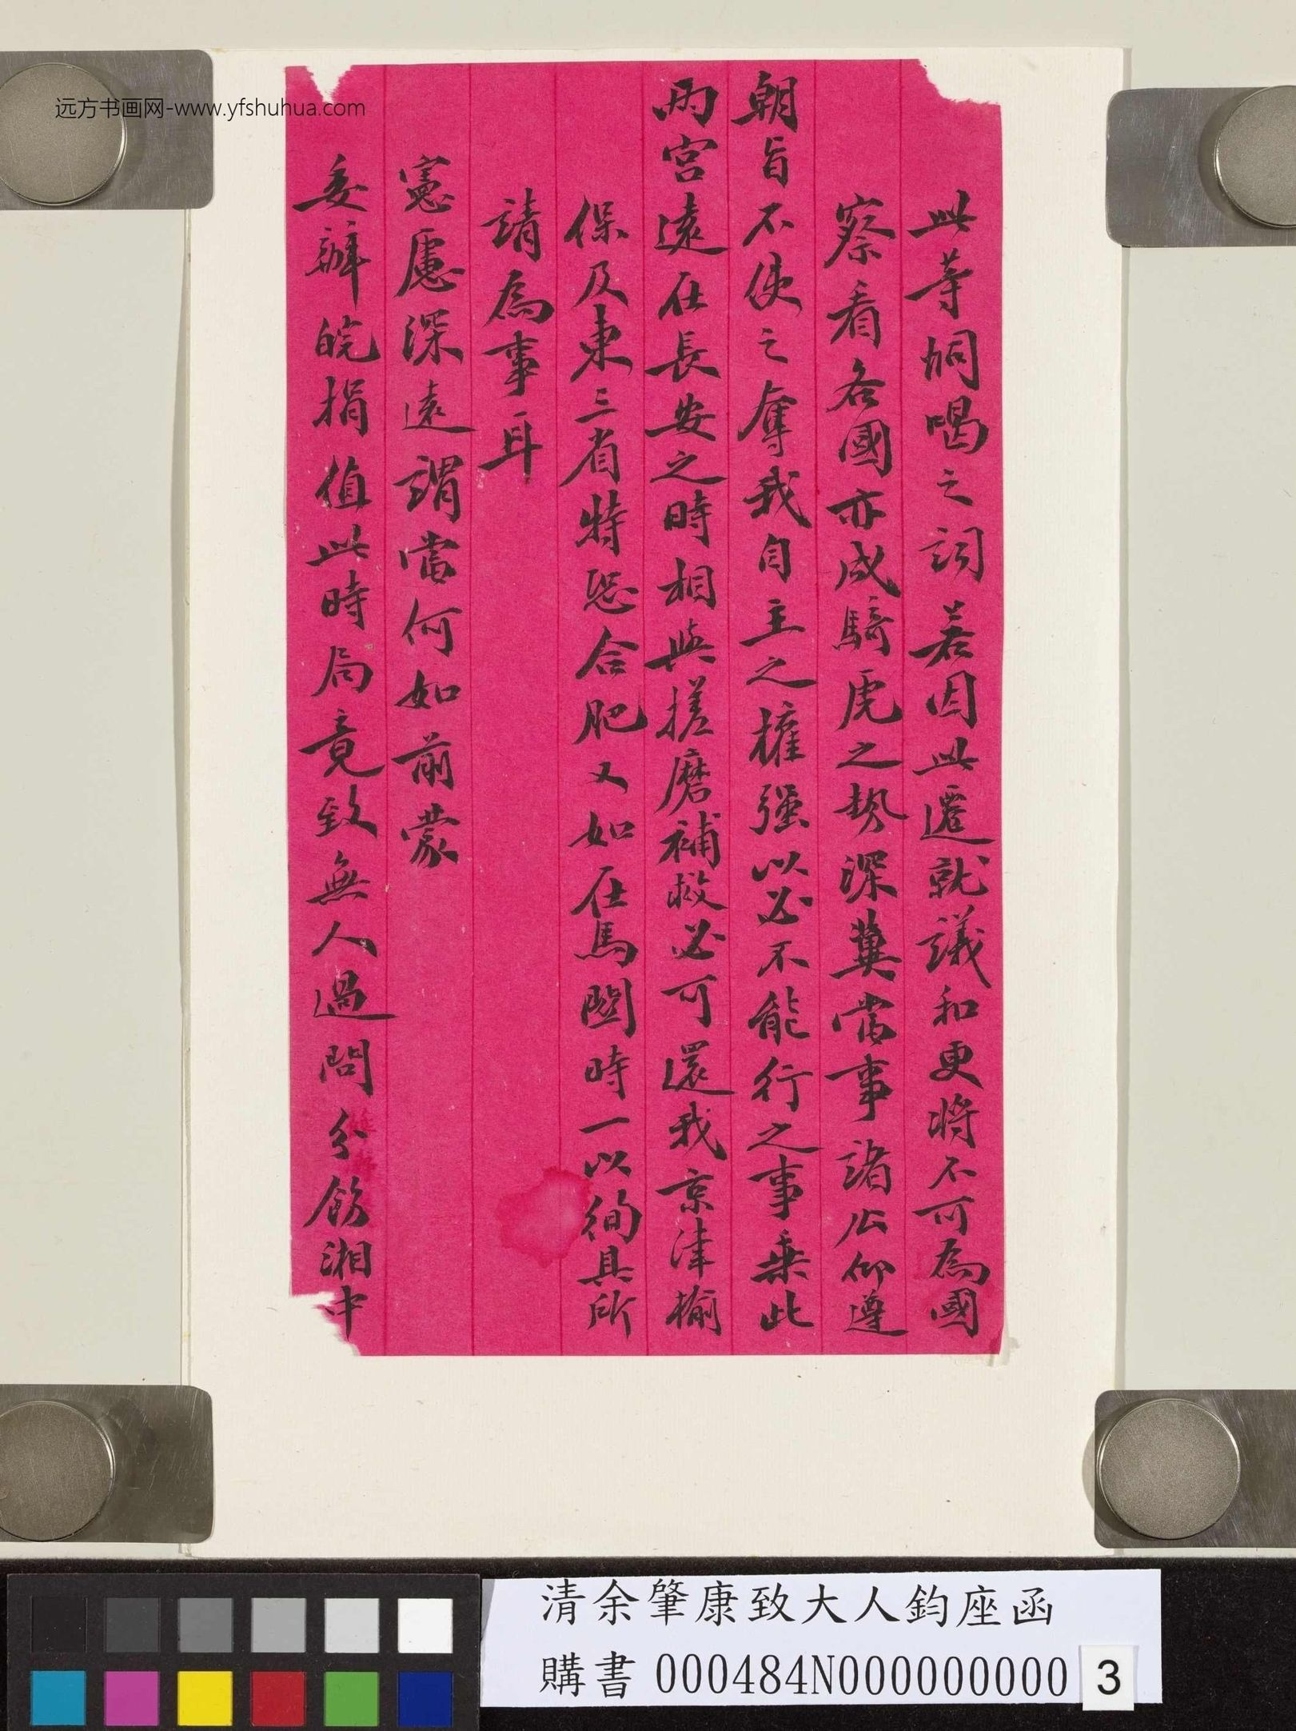 远方书画网-www.yfshuhua.com
此等恫喝之詞若因此遷就議和更將不可為國
察看各國亦成騎虎之勢深冀當事諸公仰遵
朝旨不使之奪我自主之權強以必不能行之事乘此
兩宮遠在長安之時相與搓磨補救必可還我京津榆
保及東三省特恐合肥又如在馬關時一以徇其所
請為事耳
憲慮深遠謂當何如前蒙
委辦皖捐值此時局竟致無人過問分飭湘中
清余肇康致大人鈞座函
購書 000484N000000000 3